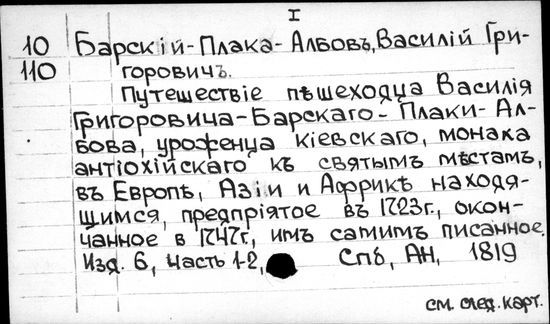 I
10 Барскій-Плака-Албовъ, Василій Гри-
110 горовичъ.
Путешествіе пѣшеходца Василія
Григоровича-Барскаго-Плаки-Ал-
бова, уроженца кіевскаго, монаха
антіохійскаго къ святымъ мѣстамъ,
въ Европѣ, Азіи и Африкѣ находя-
щимся, предпріятое въ 1723г., окон-
чанное в 1747г, имъ самимъ писанное.
Изд. 6, часть 1-2, Спб, АН, 1819
см. след. карт.